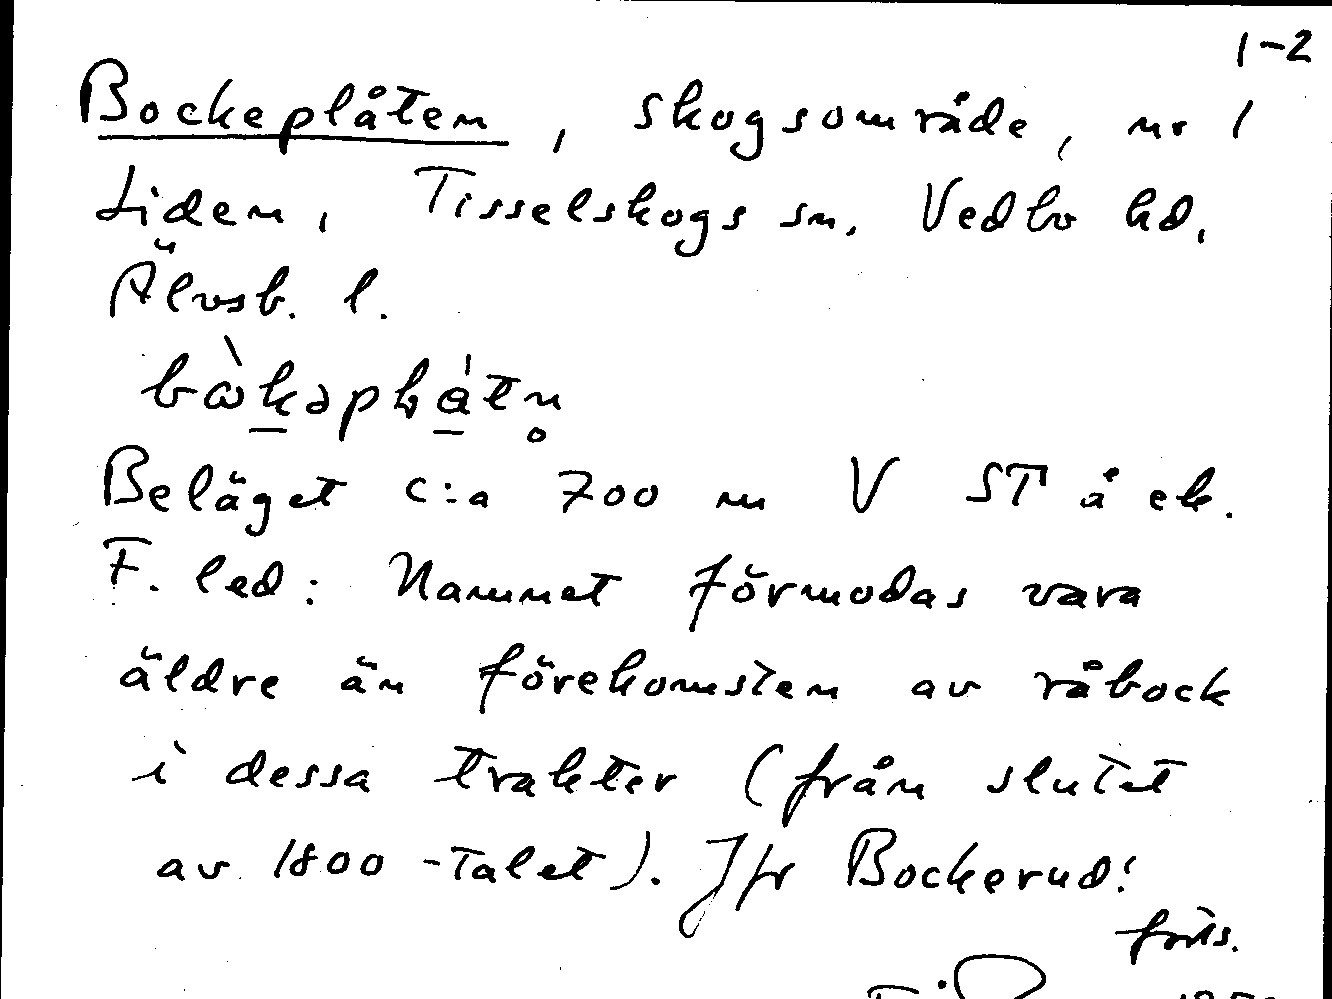 1-2
Bockeplåten, skogsområde, nr 1
Liden, Tisselskogs sn, Vedbo hd,
Älvsb. l.
Beläget c:a 700 m V ST å ek.
F. led: Namnet förmodas vara
äldre än förekomsten av råbock
i dessa trakter (från slutet
av 1800-talet). Jfr Bockerud!
forts.